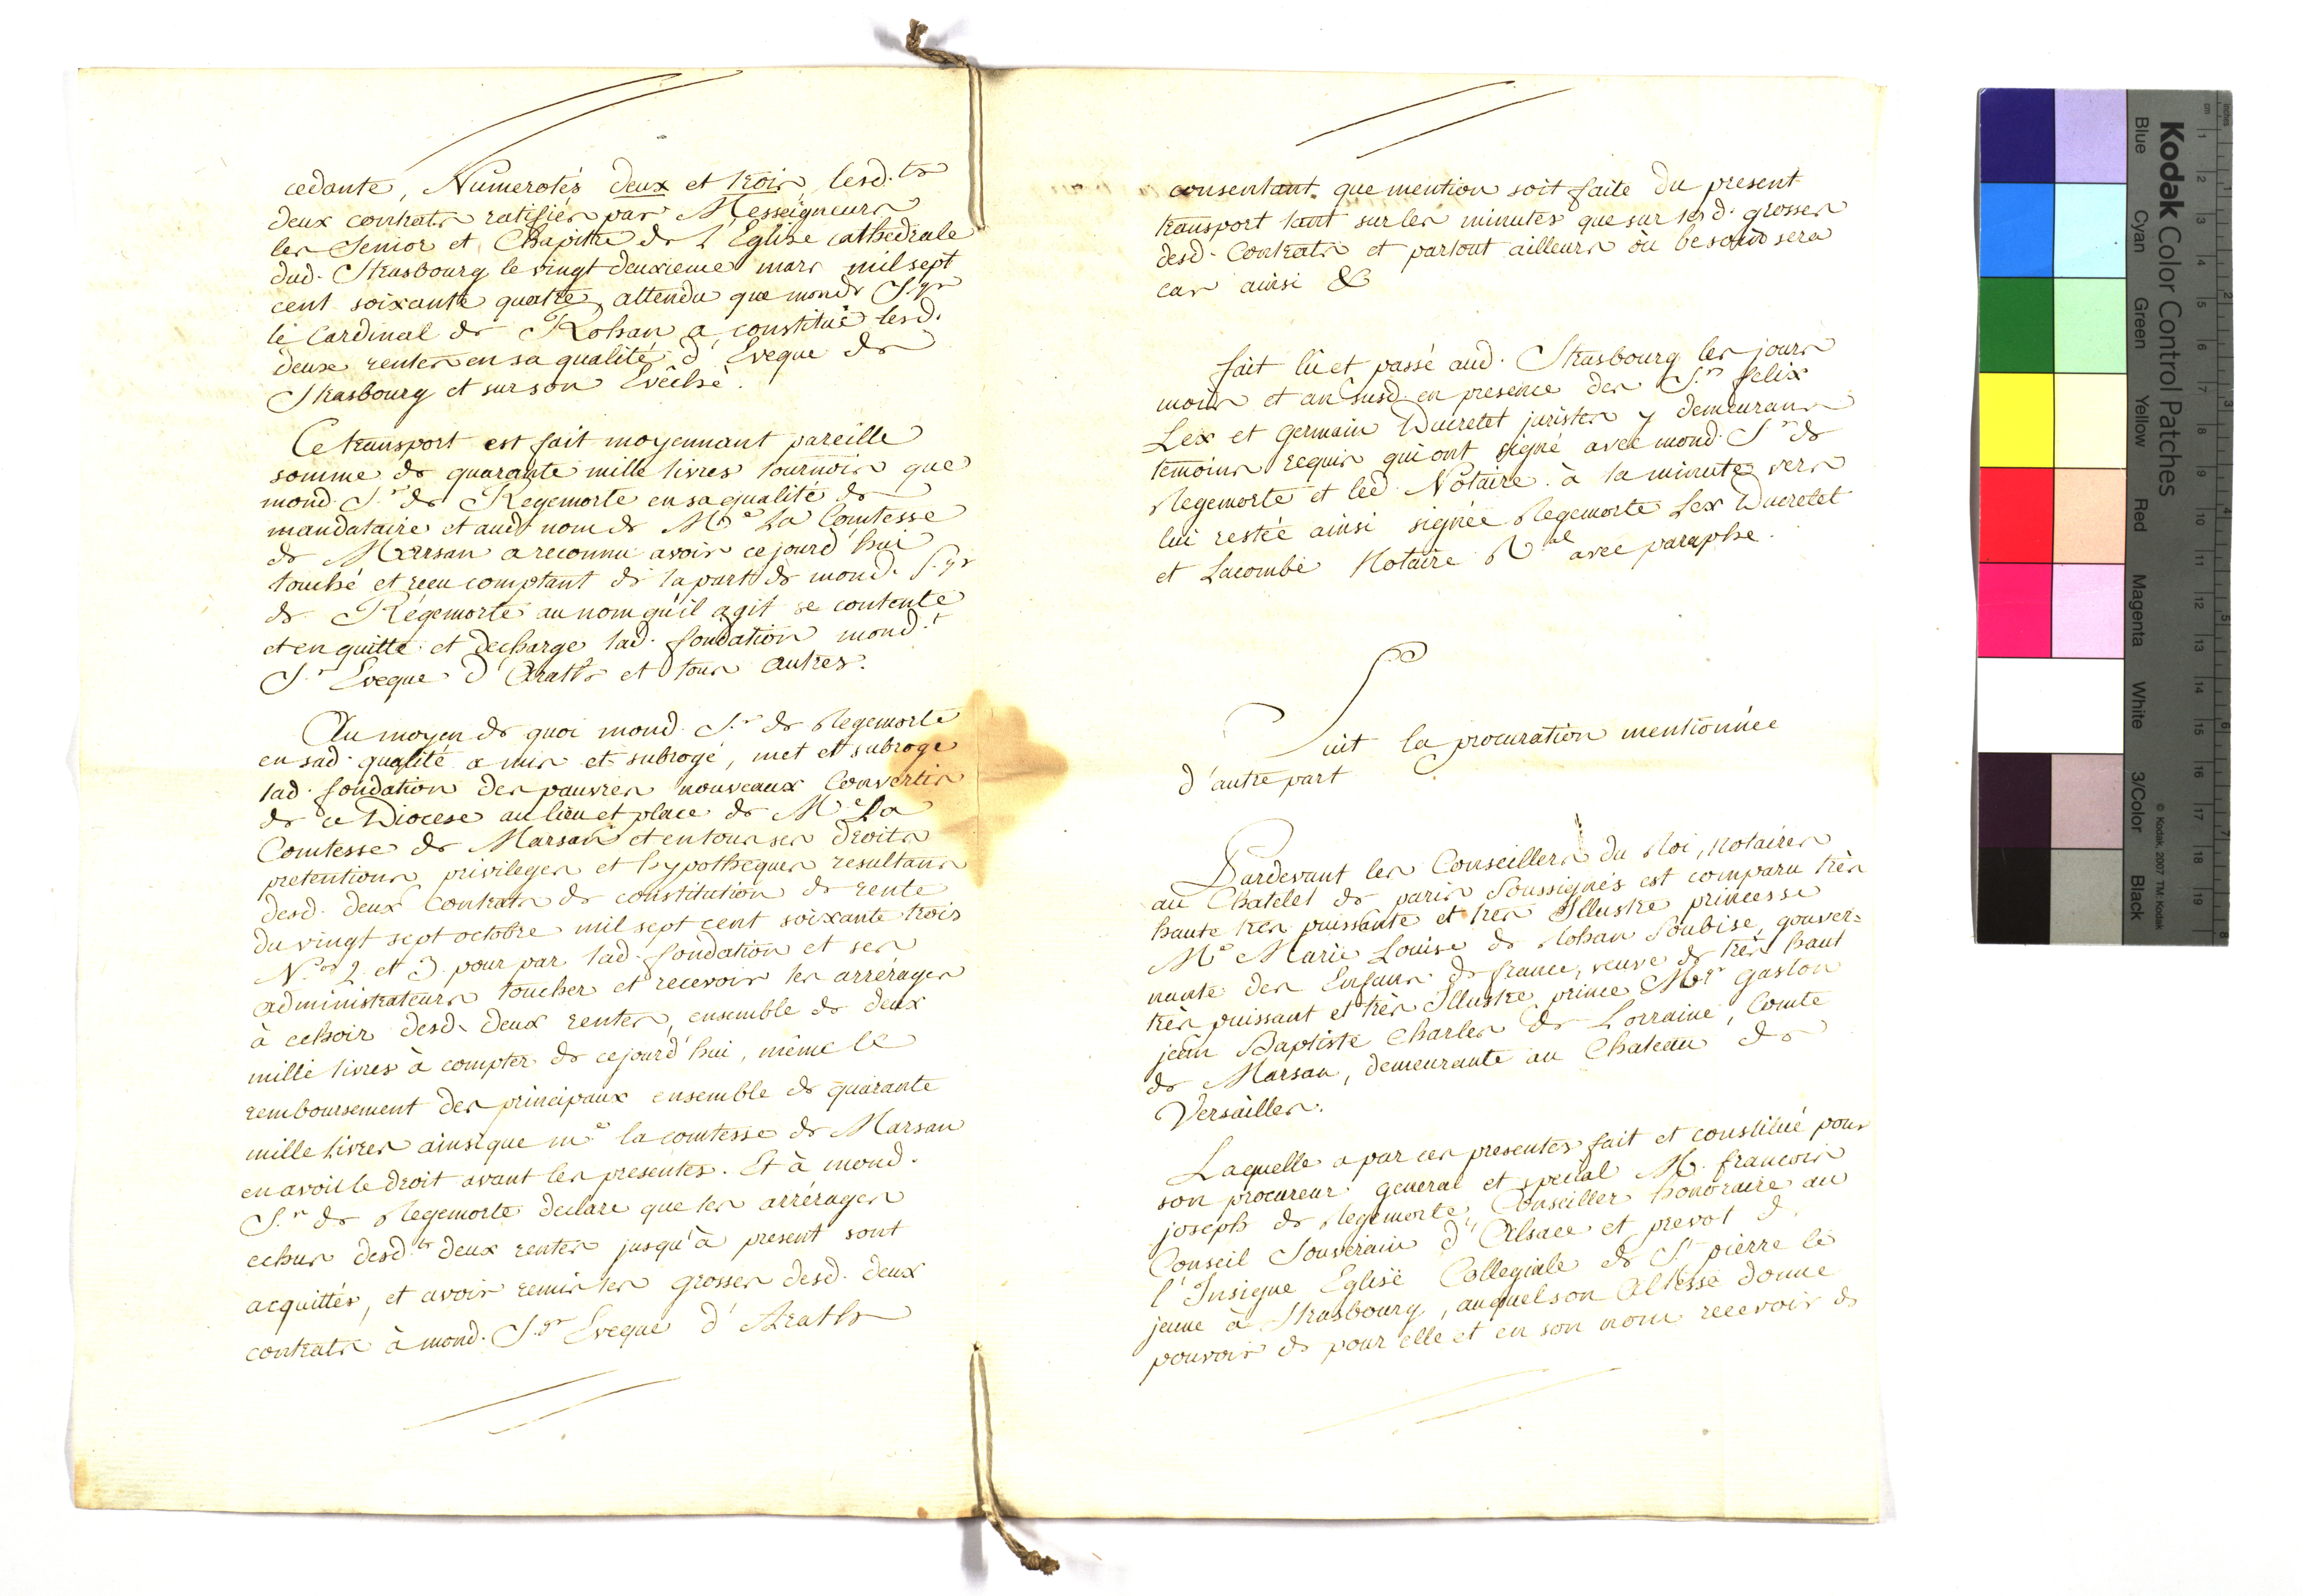 cedante, Numerotés deux et trois, lesd.ts
deux contrats ratifiés par Messeigneurs
les Senior et Chapitre de l'Eglise cathedrale
dud. Strasbourg le vingt deuxieme mars mil sept
cent soixante quatre, attendu que monds S.gr
le Cardinal de Rohan a constitué lesd.
deux rentes en sa qualité d'Eveque de
Strasbourg et sur son Evêché.
Ce transport est fait moyennant pareille
somme de quarante mille livres tournois que
mond. S.r de Regemorte en sa qualité de
mandataire et aud. nom de M.e La Comtesse
de Marsan a reconnu avoir cejourd'hui
touché et reçu comptant de la part de mond. S.gr
de Régemorte au nom qu'il agit se contente
et en quitte et decharge lad. fondation mond.t
S.r Eveque d'Araths et tous autres.
Au moyen de quoi mond. S.r de Regemorte
en sad. qualité a mis et subrogé, met et subroge
lad. fondation des pauvres nouveaux Convertis
de ce Diocese au lieu et place de M.e La
Comtesse de Marsan et en tous ses droits
pretentions privileges et hypotheques resultans
desd. deux Contrats de constitution de rente
du vingt sept octobre mil sept cent soixante trois
N.os 2. et 3. pour par lad. fondation et ses
administrateurs toucher et recevoir les arrérages
à echoir desd. deux rentes, ensemble de deux
mille livres à compter de cejourd'hui, même le
remboursement des principaux ensemble de quarante
mille livres ainsi que m.e la comtesse de Marsan
en avoit le droit avant les presentes. Et à mond.
S.r de Regemorte declaré que les arrérages
echus desd.ts deux rentes jusqu'à present sont
acquittés, et avoir remis les grosses desd. deux
contrats à mond. S.gr Eveque d'Araths
consentant que mention soit faite du present
transport tant sur les minutes que sur lesd. grosses
desd. Contrats et partout ailleurs où besoin sera
car ainsi &
fait lu et passé aud. Strasbourg les jours
mois et an susd. en presence des S.rs felix
Lex et germain Ducretet juristes y demeurans
temoins requis qui ont signé avec mond. S.r de
Regemorte et led. Notaire à la minute vers
lui restée ainsi signée Regemorte Lex Ducretet
et Lacombe Notaire R.al avec paraphe.
Suit la procuration mentionnée
d'autre part
Pardevant les Conseillers du Roi, Notaires
au Chatelet de paris Soussignés est comparu très
haute très puissante et très Illustre princesse
M.e Marie Louise de Rohan Soubise, gouver=
nante des Enfans de france, veuve de très haut
très puissant et très Illustre prince Mgr gaston
jean Baptiste Charles de Lorraine, Comte
de Marsan, demeurante au Chateau de
Versailles.
Laquelle a par ces presentes fait et constitué pour
son procureur general et special M. francois
joseph de Regemorte, Conseiller honoraire au
Conseil Souverain d'Alsace et prevot d.
l'Insigne Eglise Collegiale de S.t pierre le
jeune à Strasbourg, auquel son Altesse donne
pouvoir de pour elle et en son nom recevoir de
Kodak Color Control Patches
Blue Cyan Green Yellow Red Magenta White 3/Color Black
© Kodak, 2007 TM: Kodak